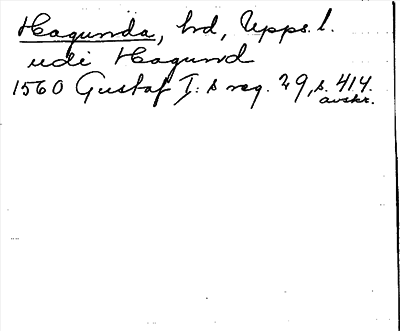 Hagunda, hd, Upps. l.
udi Hagund
1560 Gustaf I: s reg. 29, s. 414.
avskr.